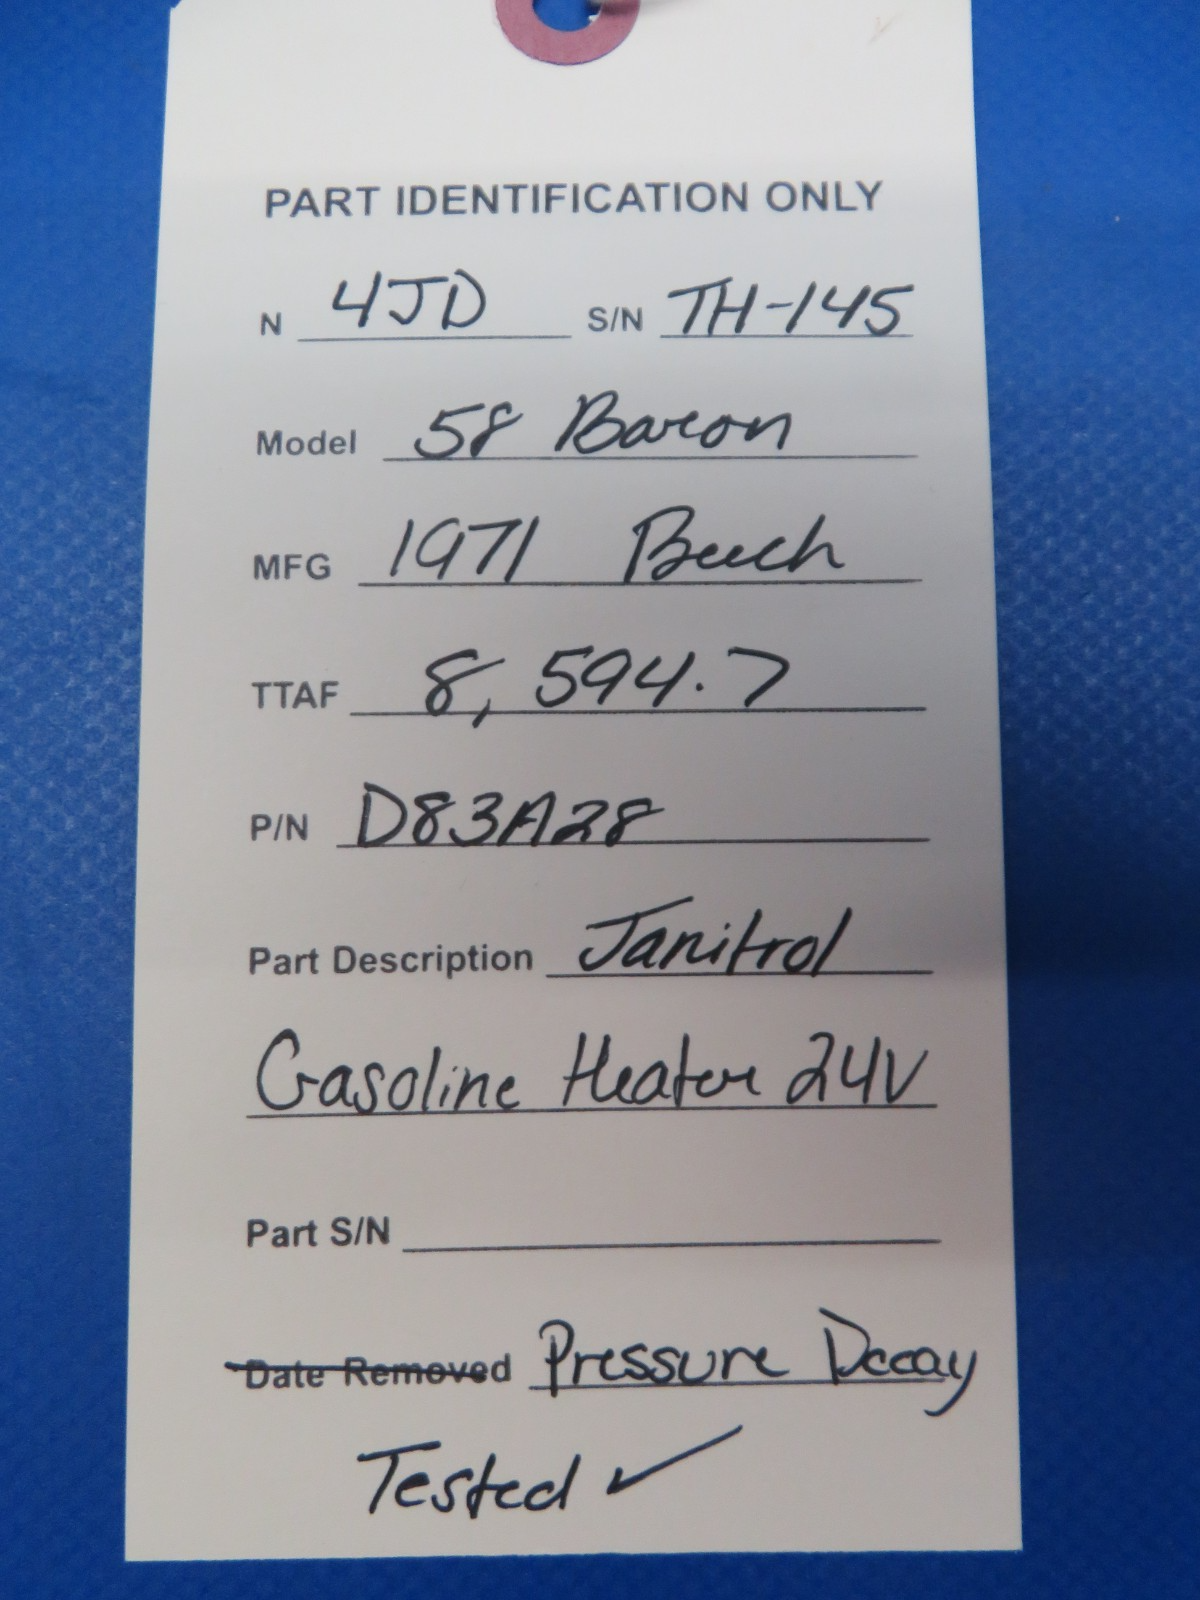 PART IDENTIFICATION ONLY
N 4JD S/N TH-145
Model 58 Baron
MFG 1971 Beech
TTAF 8,594.7
P/N D83A28
Part Description Janitrol
Gasoline Heater 24V
Part S/N
Date Removed Pressure Decay
Tested ✓